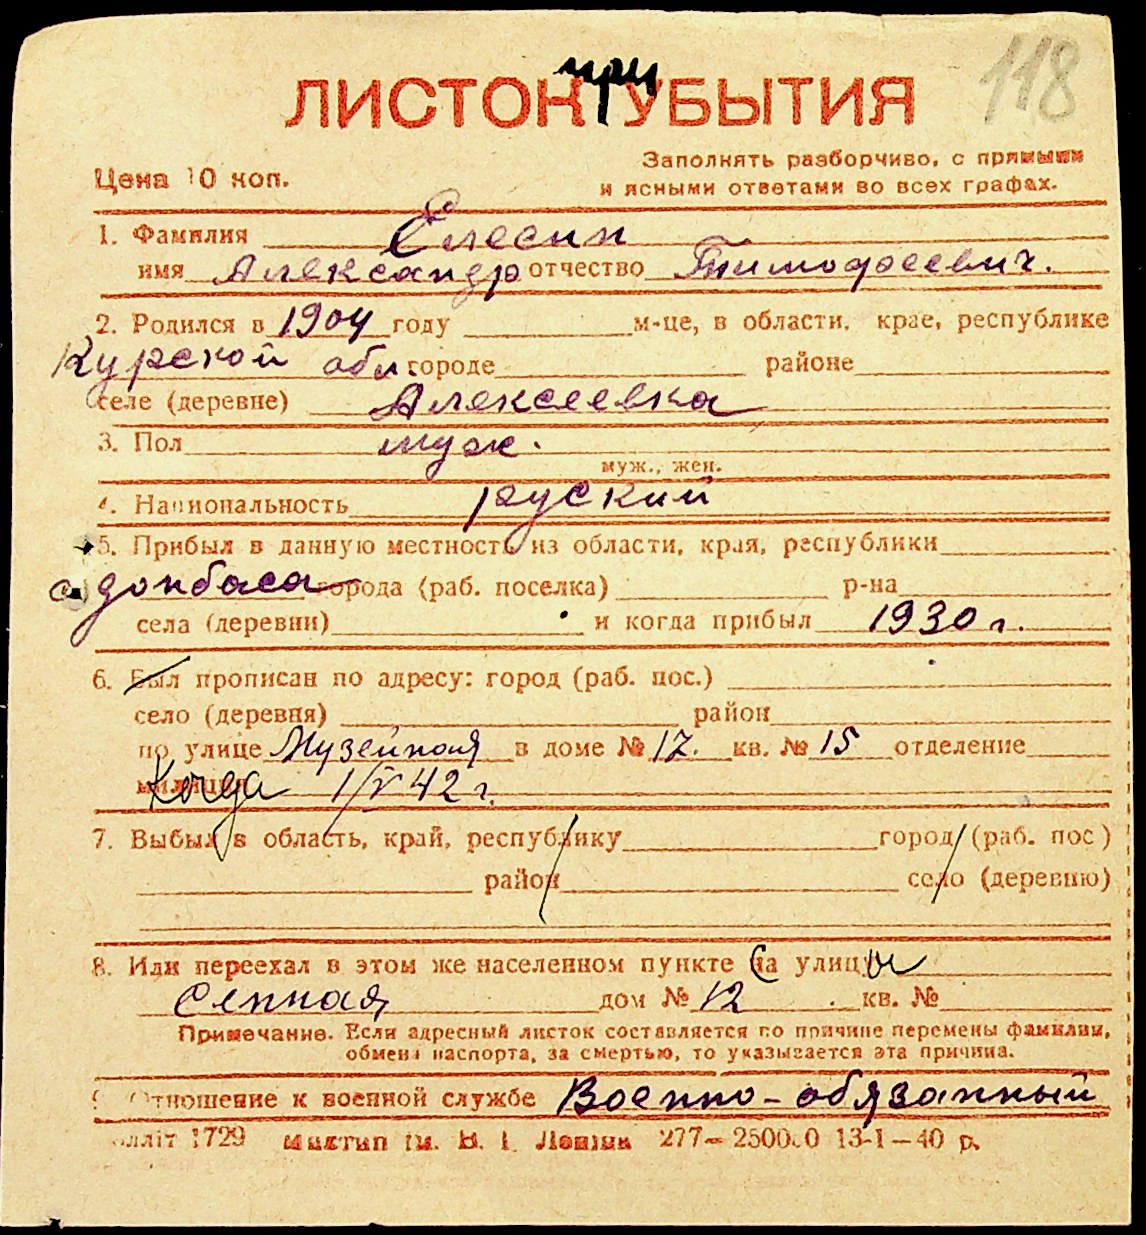 118
ЛИСТОК приУБЫТИЯ
Цена 10 коп.
Заполнять разборчиво, с прямыми
и ясными ответами во всех графах.
1. Фамилия Елесин
имя Александр отчество Тимофеевич.
2. Родился в 1904 году м-це, в области, крае, республике
Курской обл городе районе
селе (деревне) Алексеевка
3. Пол муж.
муж., жен.
4. Национальность руский
5. Прибыл в данную местность из области, края, республики
с донбаса города (раб. поселка) р-на
села (деревни) и когда прибыл 1930 г.
6. Был прописан по адресу: город (раб. пос.)
село (деревня) район
по улице Музейная в доме № 17. кв. № 15 отделение
милиции Когда 1/V 42 г.
7. Выбыл в область, край, республику город (раб. пос)
район село (деревню)
8. Или переехал в этом же населенном пункте на улицу
Сенная дом № 12 кв. №
Примечание. Если адресный листок составляется по причине перемены фамилии,
обмена паспорта, за смертью, то указывается эта причина.
9. Отношение к военной службе Военно-обязанный
1729 им. В. І. Леніна 277— 13-1—40 р.